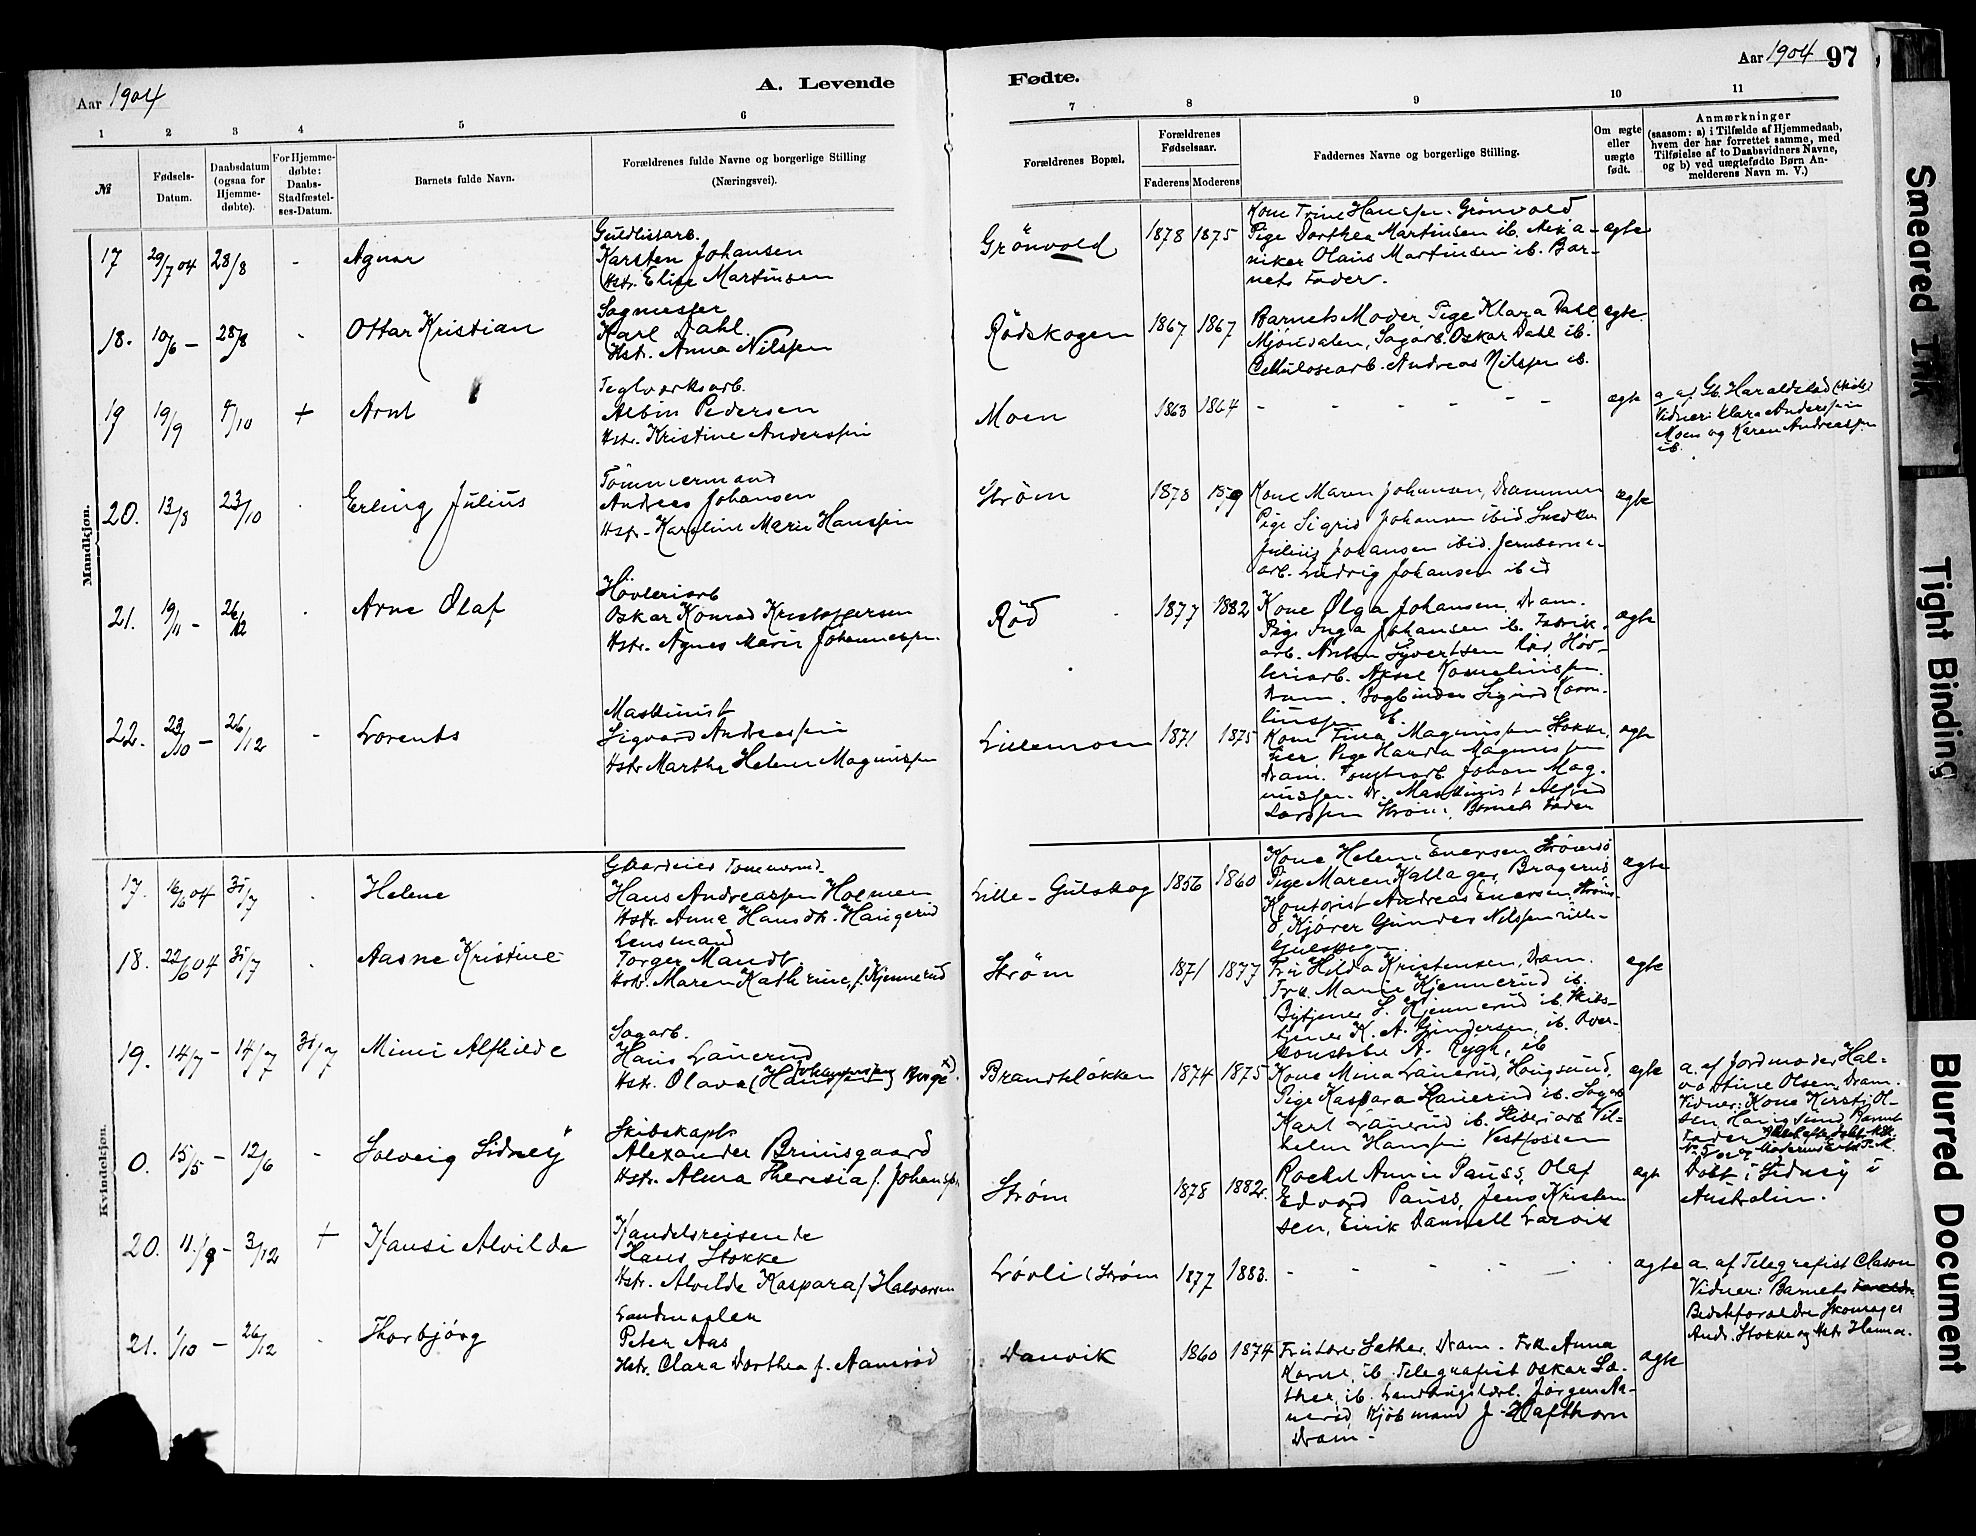 Aar 1904
A. Levende
Fødte.
Aar 1904 97
1 2 3 4 5 6 7 8 9 10 11
№
Fødsels-
Datum.
Daabsdatum
(ogsaa for
Hjemme-
døbte).
For Hjemme-
døbte:
Daabs-
Stadfæstel-
ses-Datum.
Barnets fulde Navn.
Forældrenes fulde Navne og borgerlige Stilling
(Næringsvei).
Forældrenes Bopæl.
Forældrenes
Fødselsaar.
Faderens Moderens
Faddernes Navne og borgerlige Stilling.
Om ægte
eller
uægte
født.
Anmærkninger
(saasom: a) i Tilfælde af Hjemmedaab,
hvem der har forrettet samme, med
Tilføielse af to Daabsvidners Navne,
og b) ved uægtefødte Børn An-
melderens Navn m. V.)
Mandkjøn.
17 29/7 04 28/8 - Agnar
Guldlistarb.
Karsten Johansen
Hstr. Elise Martinsen
Grönvold 1878 1875
Kone Trine Hansen. Grönvold
Pige Dorthea Martinsen ib.
Olaus Martinsen ib. Bar-
nets Fader.
ægte
18. 10/6 - 28/8 - Ottar Kristian
Sagmester
Karl Dahl.
Hstr. Anna Nilssen
Rødskogen 1867 1867
Barnets Moder Pige Klara Dahl
Mjøndalen, Sagarb. Oskar Dahl ib.
Cellulosearb. Andreas Nilssen ib.
ægte
19 19/9 /10 + Arnt
Teglværksarb.
Albin Pedersen
Hstr. Kristine Anderssen
Moen 1863 1864 - - - - - -
ægte
a af Gb. Haraldstad
Vidner: Klara Anderssen
Moen og Karen Andreassen
ib.
20. 13/8 23/10 . Erling Julius
Tømmermand
Andreas Johansen
Hstr. Karoline Marie Hanssen
Strøm 1878 1879
Kone Maren Johansen, Drammen
Pige Sigrid Johansen ibid Snedker
Julius Johansen ibid. Jernbane-
arb. Ludvig Johansen ibid
ægte
21. 19/11 - 26/12 . Arne Olaf
Høvleriarb
Oskar Konrad Kristoffersen
Hstr. Agnes Marie Johannessen.
Rød 1877 1882
Kone Olga Johansen, Dram.
Pige Inga Johansen ib. Fabrik-
arb. Anton Syvertsen Rød, Høv-
leriarb. Aksel Korneliussen
Dram. Bogbinder Sigurd Korne-
liussen ib.
ægte
22. 23/10 - 26/12 - Lorents
Maskinist
Sigvard Andreassen
Hstr Martha Helene Magnussen
Lillemoen 1871 1875
Kone Tina Magnussen Stokke,
her Pige Harda Magnussen
Dram. Tomtearb Johan Mag-
nussen. Dr. Maskinist Alfred
Larssen Strøm, Barnets Fader
ægte
Kvindekjøn.
17. 16/6 04 31/7 . Helene
Gaardeier Tømmerm.
Hans Andreassen Holmen
Hstr. Anna Hansdtr. Haugerud
Lille-Gulskog 1856 1860
Kone Helene Evensen Strømsö
Pige Maren Kallager, Bragernes
Kontorist Andreas Evensen Strøms-
ö, Kjører Gunder Nilssen Lille-
Gulskogen.
ægte
18. 22/6 04 31/7 . Aasne Kristine
Lensmand
Torger Mandt.
Hstr. Maren Kathrine, f. Kjennerud
Strøm 1871 1877
Fru Hilda Kristensen, Dram.
Frk. Marie Kjennerud ib.
Bytjener S. Kjennerud ib. Skibs-
fører K. A. Gundersen, ib. Over-
konstabel A. Rygh, ib
ægte
19. 14/7 - 14/7 31/7 Mimi Alfhilde
Sagarb.
Hans Lånerud
Hstr. Olava (Hanssen) Berge
Brandtløkken 1874 1875
Kone Mina Lånerud, Hougsund,
Pige Kaspara Lånerud ib. Sagarb
Karl Lånerud ib. Sliberiarb Vil-
helm Hanssen Vestfossen
ægte
a. af Jordmoder Hal-
vardtine Olsen, Dram.
Vidner: Kone Kirsti Ol-
sen, Hougsund Barnets
Fader
0. 15/5 - 12/6 - Solveig Sidney
Skibskapt.
Alexander Brinsgaard
Hstr. Alma Theresia f. Johanssen
Strøm 1878 1882.
Rachel Annie Pauss, Olaf
Edvard Pauss, Jens Kristen
sen, Eirik Dannell Larvik
ægte
Døbt i Sidney i
Australien.
20. 11/9 - 3/12 + Hansi Alvilde
Handelsreisende
Hans Stokke
Hstr. Alvilde Kaspara f. Halvorsen
Løvli (Strøm 1877 1883. - - - - - -
ægte
a. af Telegrafist Clason
Vidner: Barnets Forældre
Bedsteforældre Skomager
Andr. Stokke og Hstr Helene.
21. 1/10 - 26/12 . Thorbjörg
Landmaaler
Peter Aas
Hstr. Clara Dorthea f. Aamrød
Danvik 1860 1874
Fru Sæther, Dram. Frk. Anna
Korne, ib. Telegrafist Oskar Sæ-
ther, ib. Jørgen Aa-
merød, Kjöbmand J. Hafthorn
Dram-
ægte
Smeared Ink
Tight Binding
Blurred Document